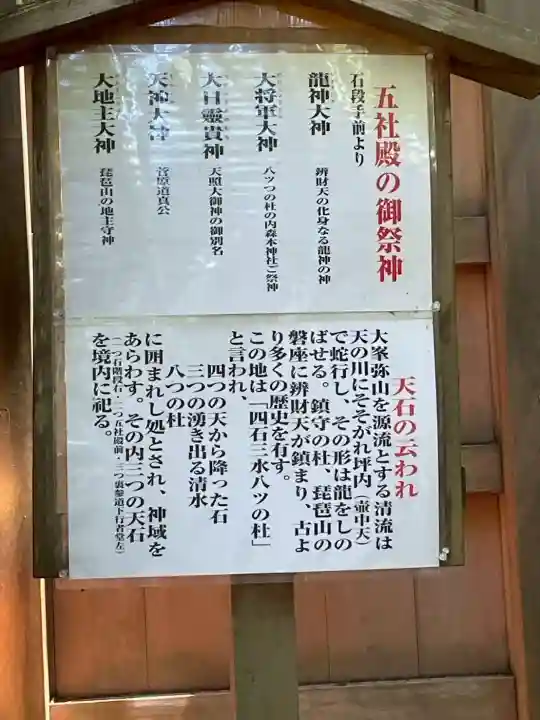 五社殿の御祭神
石段手前より
龍神大神 辨財天の化身なる龍神の神
大将軍大神 八ツつの杜の内森本神社ご祭神
大日霊貴神 天照大御神の御別名
天神大神 菅原道真公
大地主大神 琵琶山の地主守神
天石の云われ
大峯弥山を源流とする清流は
天の川にそそがれ坪内（壷中天）
で蛇行し、その形は龍をしの
ばせる。鎮守の杜、琵琶山の
磐座に辨財天が鎮まり、古よ
り多くの歴史を有す。
この地は「四石三水八ツの杜」
と言われ、
四つの天から降った石
三つの湧き出る清水
八つの杜
に囲まれし処とされ、神域を
あらわす。その内三つの天石
（一つ石階段右・一つ五社殿前・三つ裏参道下行者堂左）
を境内に祀る。